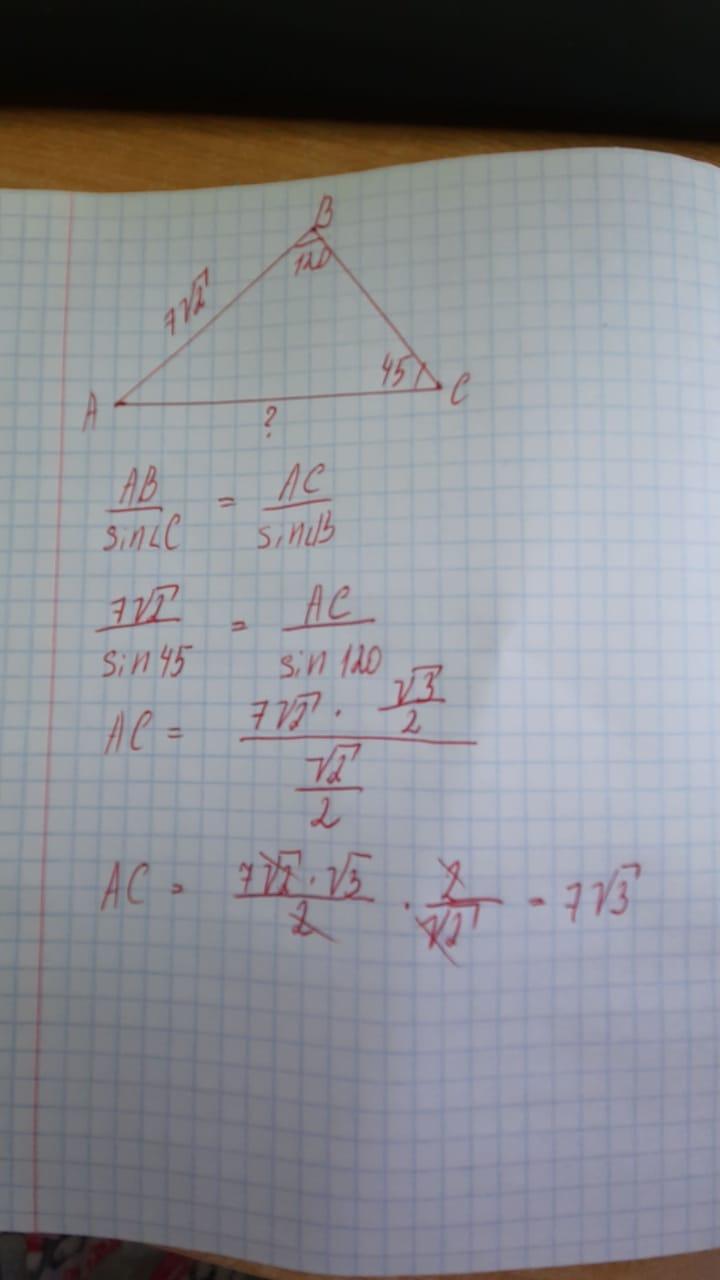 B
120
7√2
45
A
C
?
AB/sin∠C = AC/sin∠B
7√2/sin 45 = AC/sin 120
AC = (7√2 · √3/2)/(√2/2)
AC = 7√2 · √3/2 · 2/√2 = 7√3